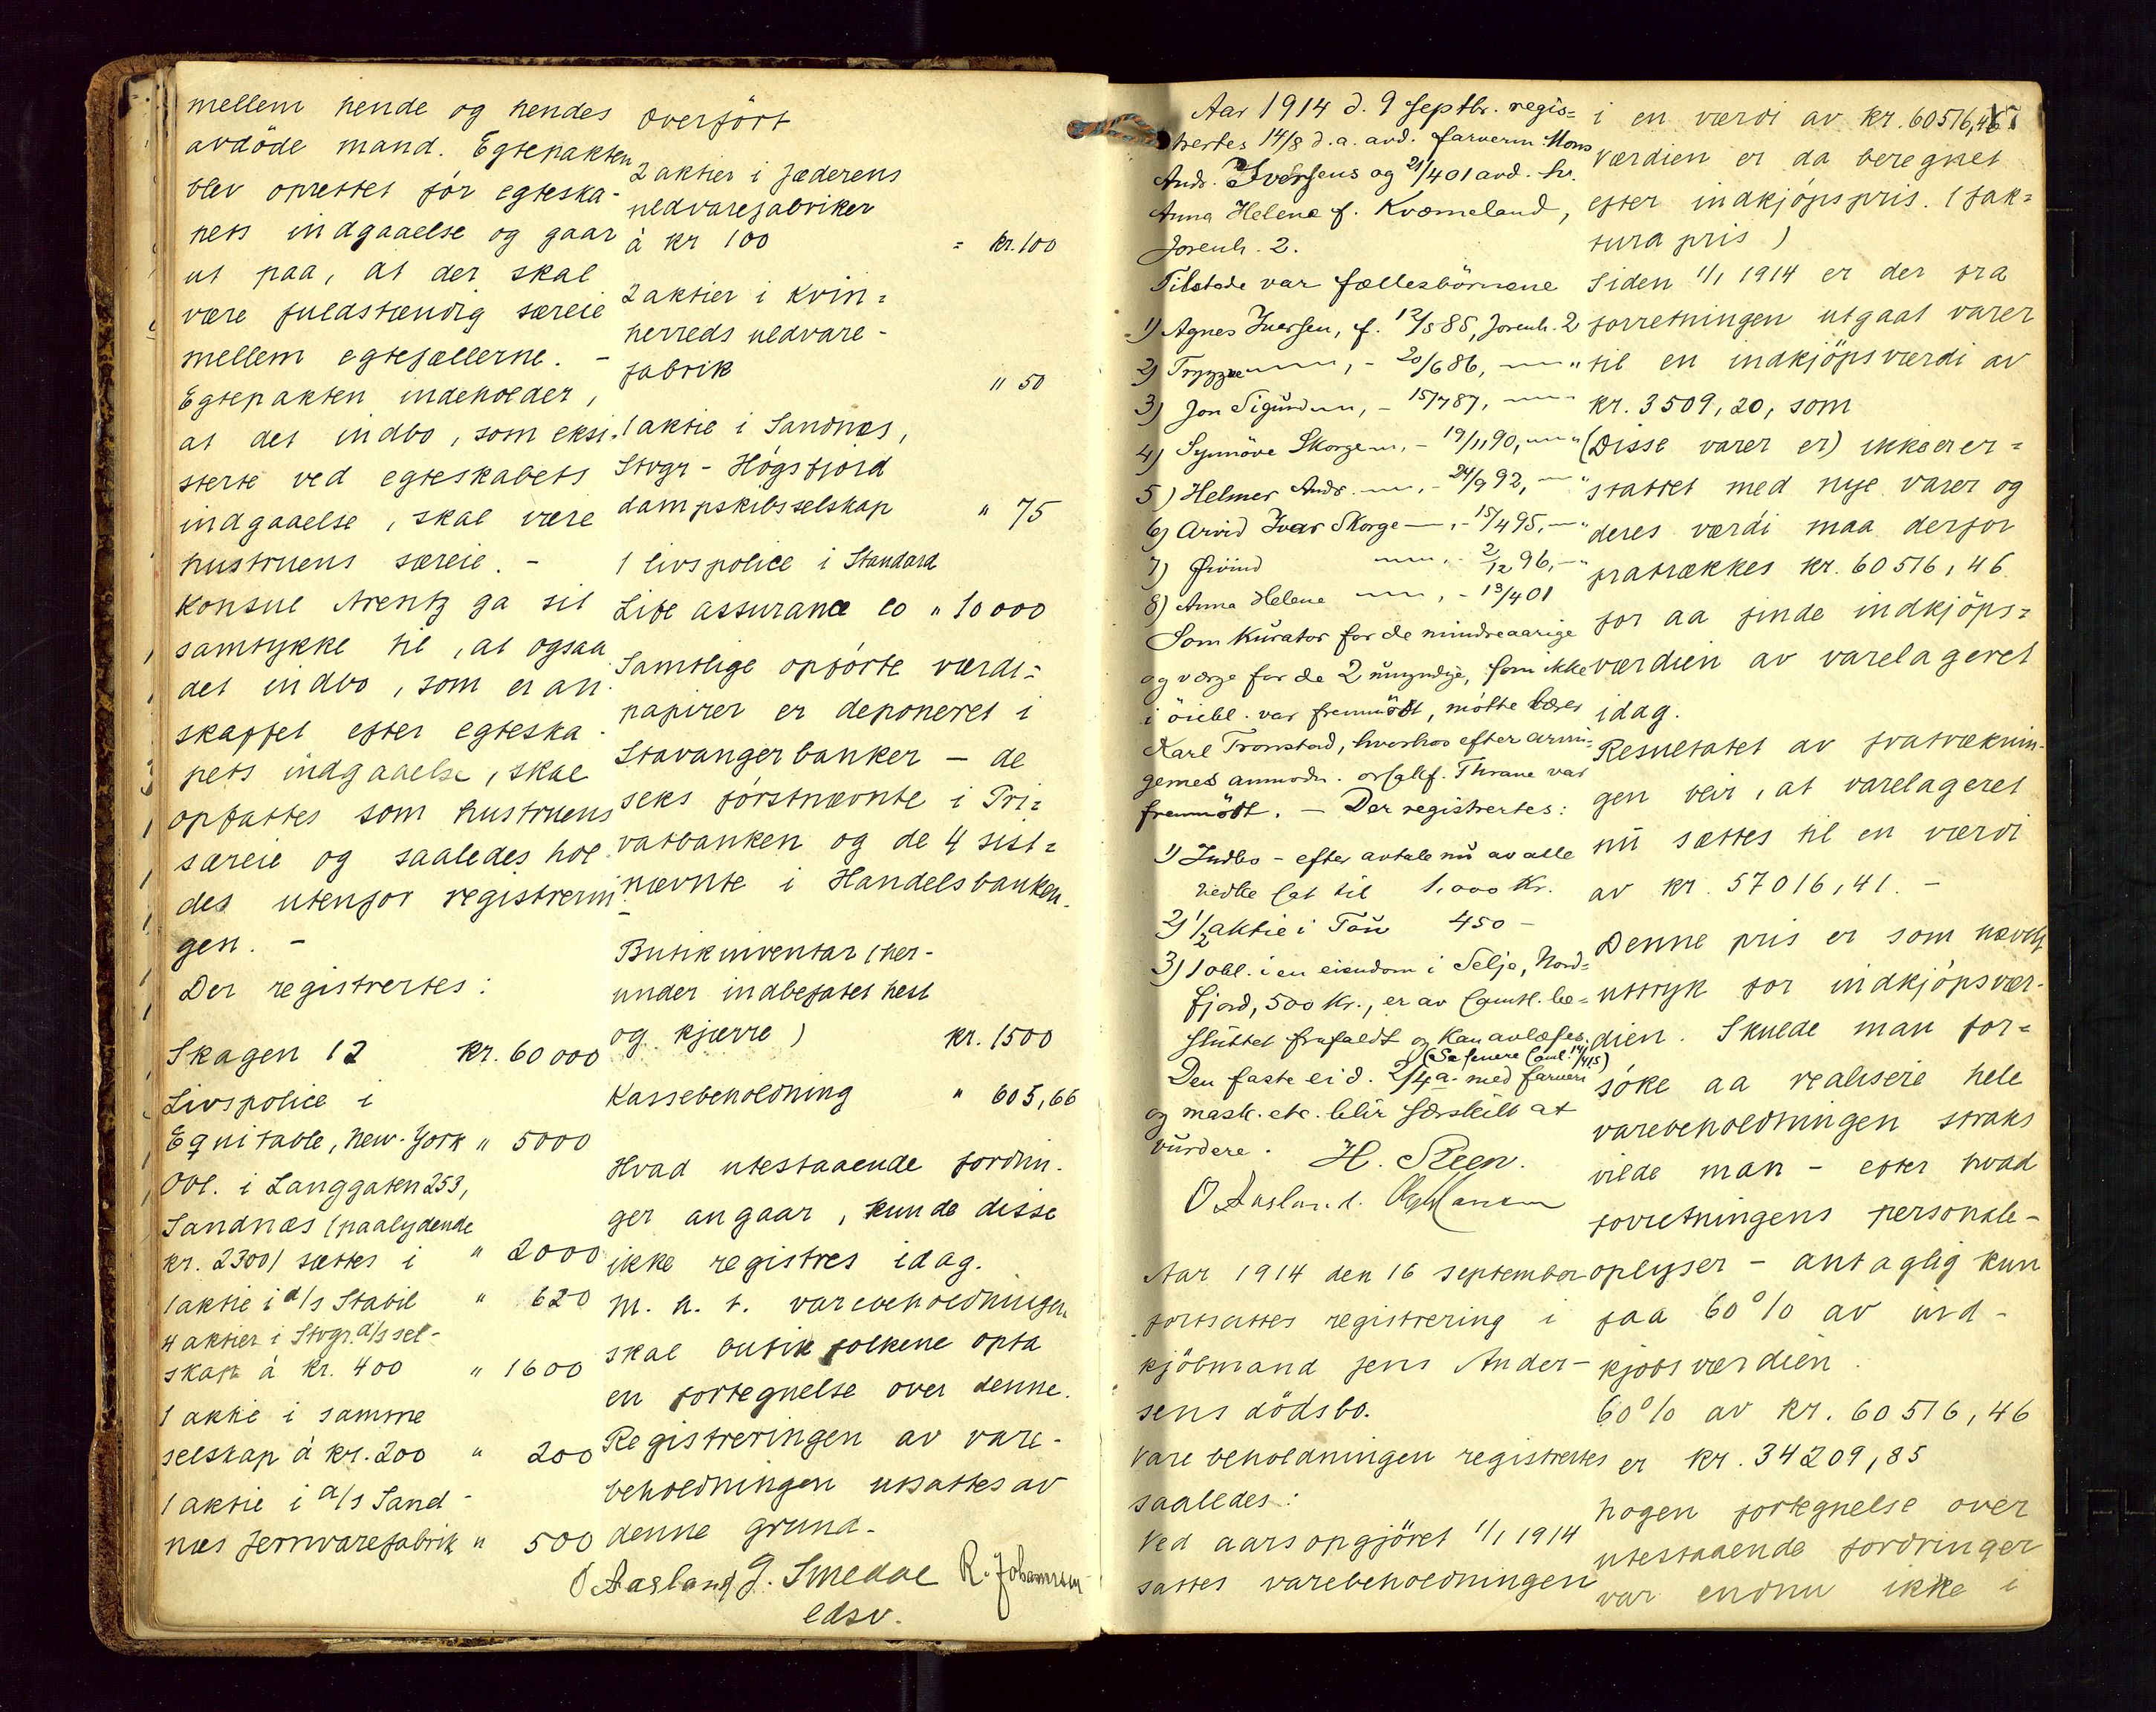 mellem hende og hendes
avdöde mand. Egtepakten
blev oprettet før egteska-
pets indgaaelse og gaar
ut paa, at der skal
være fuldstændig særeie
mellem egtefællerne. -
Egtepakten indeholder,
at det indbo, som eksi-
sterte ved egteskabets
indgaaelse, skal være
hustruens særeie. -
Konsul Arentz ga sit
samtykke til, at ogsaa
det indbo, som er an-
skaffet efter egteska-
pets indgaaelse, skal
opfattes som hustruens
særeie og saaledes hol-
des utenfor registrerin-
gen. -
Der registrertes:
Skagen 12 kr. 60 000
Livspolice i
Equitable, New-York " 5000
Obl. i Langgaten 253,
Sandnæs (paalydende
kr. 2300) sættes i " 2000
1 aktie i a/s Stabil " 620
4 aktier i Stvgr. d/s sel-
skap à kr. 400 " 1600
1 aktie i samme
selskap à kr. 200 " 200
1 aktie i a/s Sand-
næs Jernvarefabrik " 500
Overført
2 aktier i Jæderens
uldvarefabriker
à kr 100 = kr. 100
2 aktier i Kvin=
herreds uldvare-
fabrik " 50
1 aktie i Sandnæs,
Stvgr - Högsfjord
dampskibsselskap " 75
1 livspolice i Standard
Life assurance co " 10 000
Samtlige opførte værdi=
papirer er deponeret i
Stavanger banker - de
seks førstnævnte i Pri=
vatbanken og de 4 sist=
nævnte i Handelsbanken.
Butikinventar (her-
under indbefatet hest
og kjærre) kr. 1500
Kassebeholdning " 605,66
Hvad utestaaende fordrin-
ger angaar, kunde disse
ikke registres idag.
M. h. t. varebeholdningen
skal butikfolkene opta
en fortegnelse over denne.
Registreringen av vare-
beholdningen utsattes av
denne grund.
O Aasland J. Smedal R. Johannsen
edsv.
Aar 1914 d. 9 septbr. regis=
trertes 14/8 d.a. avd. farverm. Mons
Andr. Iversens og 21/4 01 avd. hr.
Anna Helene f. Kverneland,
Jorenh. 2.
Tilstede var fællesbörnene
1) Agnes Iversen, f. 12/5 85, Jorenh. 2
2) Trygve —"—, - 20/6 86, —"— "
3) Jon Sigurd —"—, - 15/7 87, —"—
4) Synnöve Skorge —"—, - 19/11 90, —"— "
5) Helmer Andr. —"—, - 24/9 92, —"— "
6) Arvid Ivar Skorge —, - 15/4 95, —"— "
7) Øivind —"—, - 2/12 96, —"— "
8) Anna Helene —"—, - 13/4 01
Som kurator for de mindreaarige
og værge for de 2 umyndige, som ikke
i öiebl. var fremmödt, mötte
Karl Tronstad, hvorhos efter arvin-
gernes anmodn. orsakf. Thrane var
fremmödt. - Der registrertes:
1) Indbo - efter avtale nu av alle
vedtat sat til 1.000 Kr.
2) 1/2 aktie i Tou 450 -
3) 1 obl. i en eiendom i Selje, Nord=
fjord, 500 Kr., er av samtl. be=
sluttet frafaldt og kan avlæses.
(Se senere saml. 14/1 1915)
Den faste eid. 2/4 a. med farveri
og mask. etc. blir særskilt at
vurdere. H. Steen.
O Aasland.
Aar 1914 den 16 september
fortsattes registrering i
kjöbmand Jens Ander-
sens dödsbo.
Varebeholdningen registrertes
saaledes:
Ved aarsopgjöret 1/1 1914
sattes varebeholdningen
i en værdi av kr. 60516,46
Værdien er da beregnet
efter indkjöpspris. (fak=
turapris)
Siden 1/1 1914 er der fra
forretningen utgaat varer
til en indkjöpsværdi av
kr. 3509,20, som
(Disse varer er) ikke er er=
stattet med nye varer og
deres værdi maa derfor
fratrækkes kr. 60516,46
for aa finde indkjöps=
værdien av varelageret
idag.
Resultatet av fratræknin-
gen blir, at varelageret
nu sættes til en værdi
av kr. 57016,41. -
Denne pris er som nævnt
uttryk for indkjöpsvær-
dien. Skulde man for=
söke aa realisere hele
varebeholdningen straks
vilde man - efter hvad
forretningens personale -
oplyser - antaglig kun
faa 60% av ind-
kjöbsværdien.
60% av kr. 60516,46
er kr. 34209,85
Nogen fortegnelse over
utestaaende fordringer
var endnu ikke i